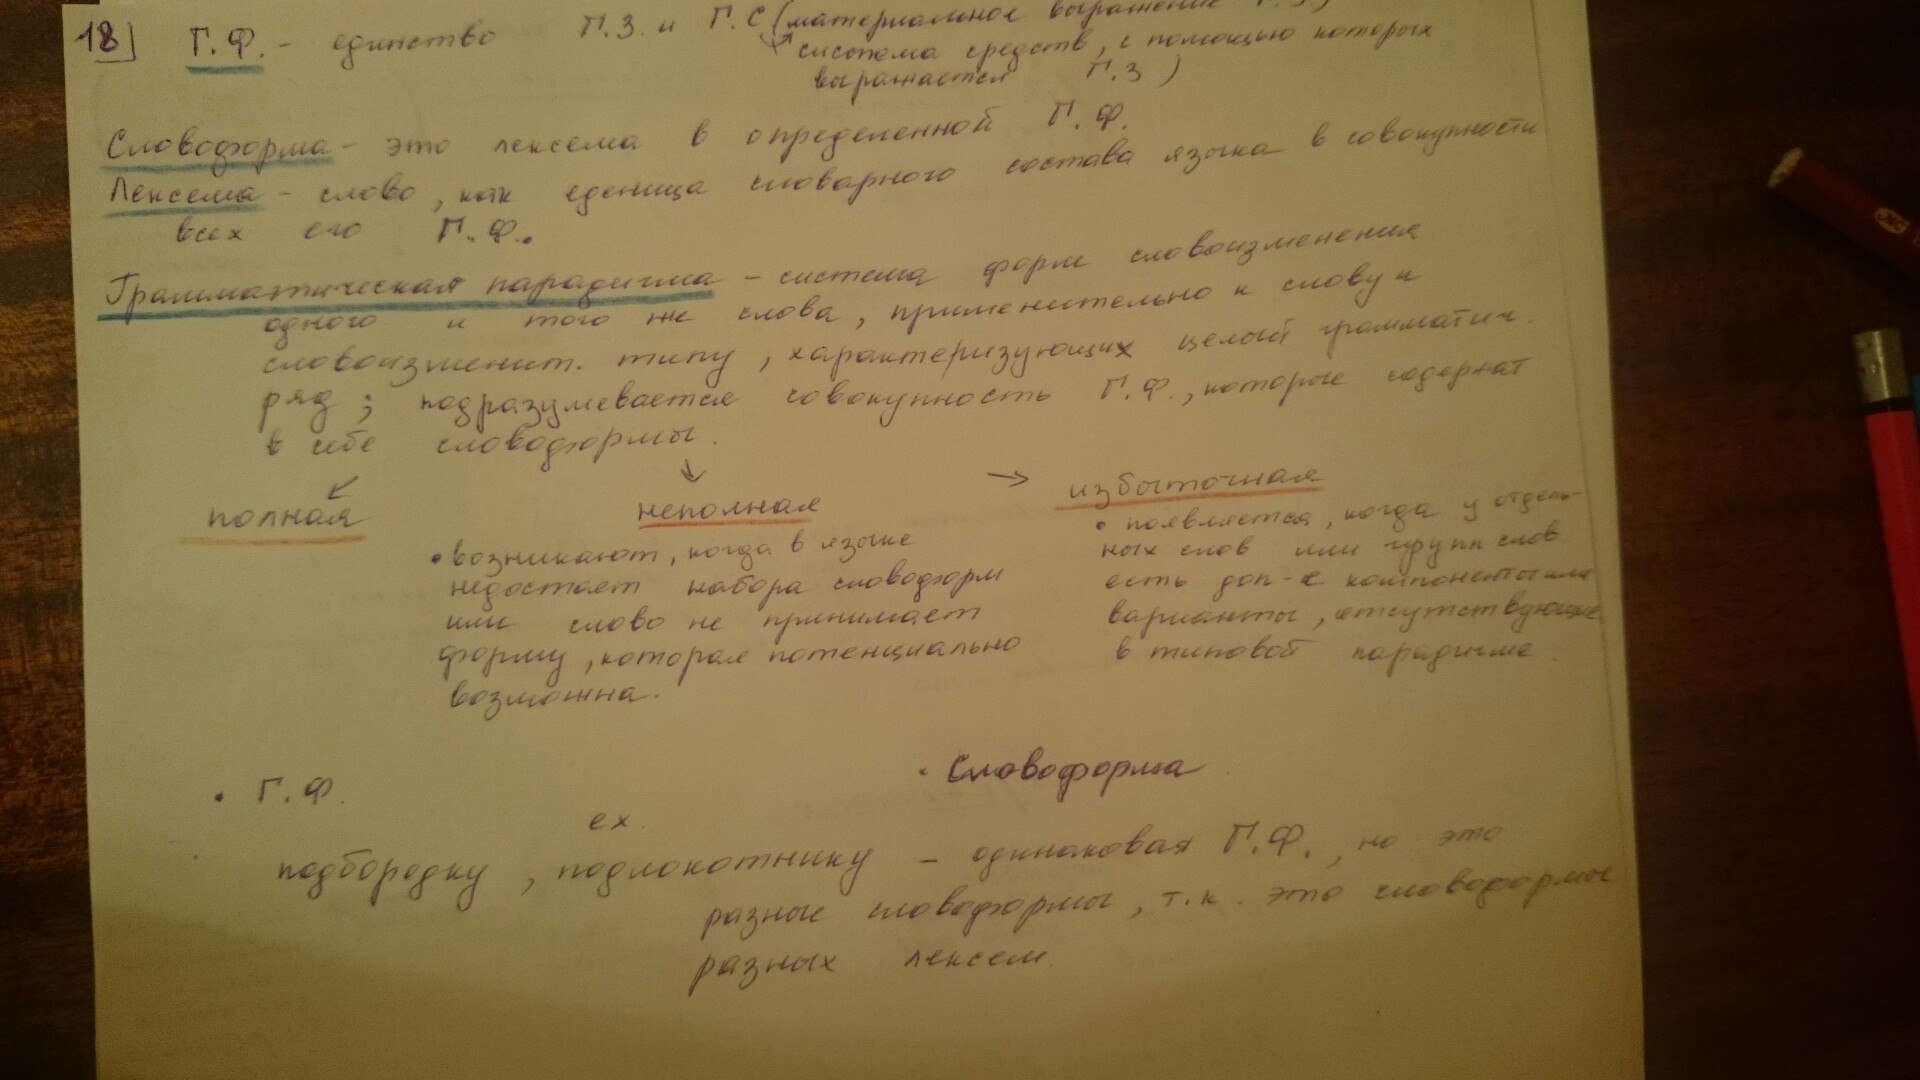 18] Г.Ф. - единство П.З. и Г.С (материальное выражение Г.З)
система средств, с помощью которых
выражается Г.З)
Словоформа - это лексема в определенной Г.Ф.
Лексема - слово, как еденица словарного состава языка в совокупности
всех его Г.Ф.
Грамматическая парадигма - система форм словоизменения
одного и того же слова, применительно к слову и
словоизменит. типу, характеризующих целый грамматич.
ряд; подразумевается совокупность Г.Ф., которые содержат
в себе словоформы.
полная неполная → избыточная
• возникают, когда в языке
недостает набора словоформ
или слово не принимает
форму, которая потенциально
возможна.
• появляется, когда у отдель-
ных слов или групп слов
есть доп-е компоненты или
варианты, отсутствующие
в типовой парадигме.
• Г.Ф. • Словоформа
ex.
подбородку, подлокотнику - одинаковая Г.Ф., но это
разные словоформы, т.к. это словоформы
разных лексем.